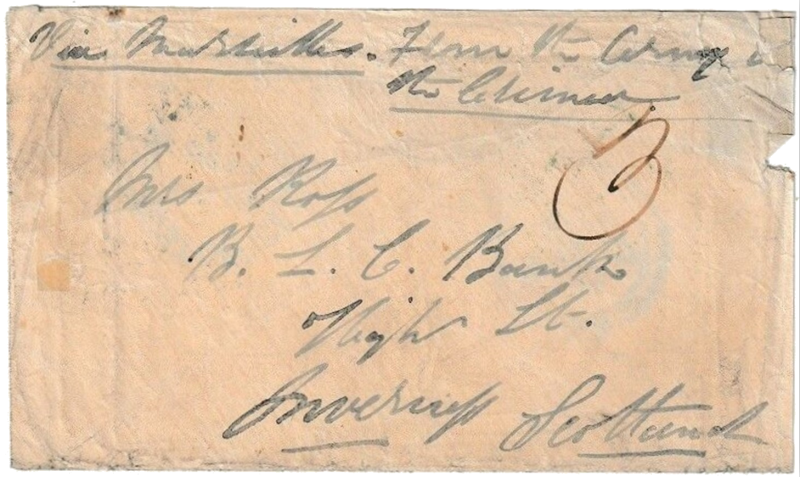 Via Marseilles. From the Army in
the Crimea
3
Mrs. Ross
B. L. C. Bank
High St.
Inverness Scotland